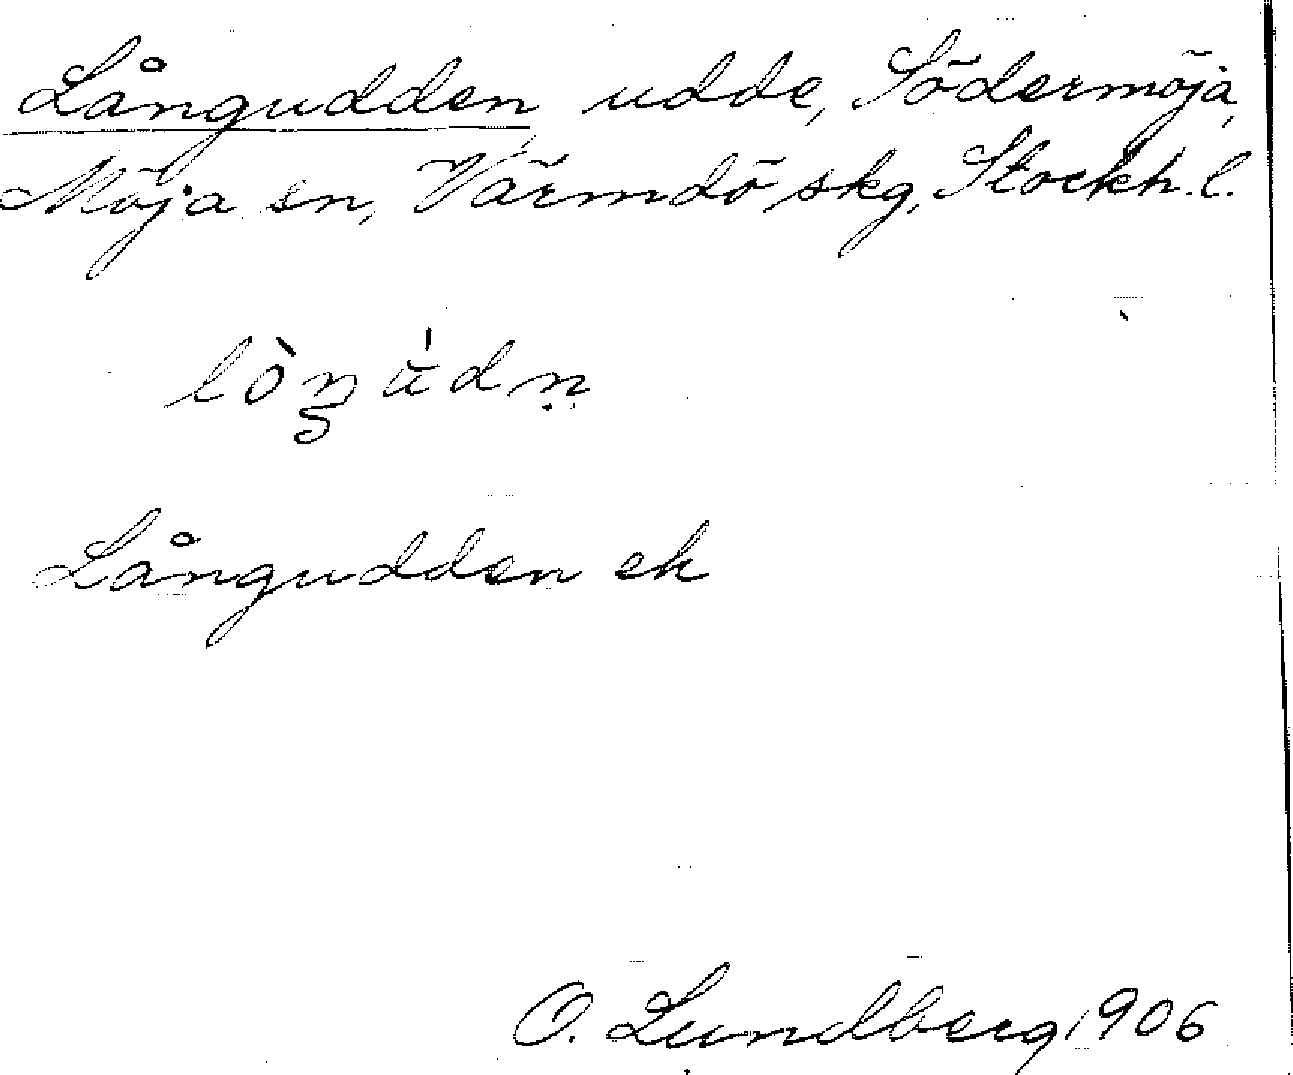 Långudden udde, Södermöja,
Möja sn, Värmdö skg, Stockh. l.
lòŋu̇́dṇ
Långudden ek
O. Lundberg 1906